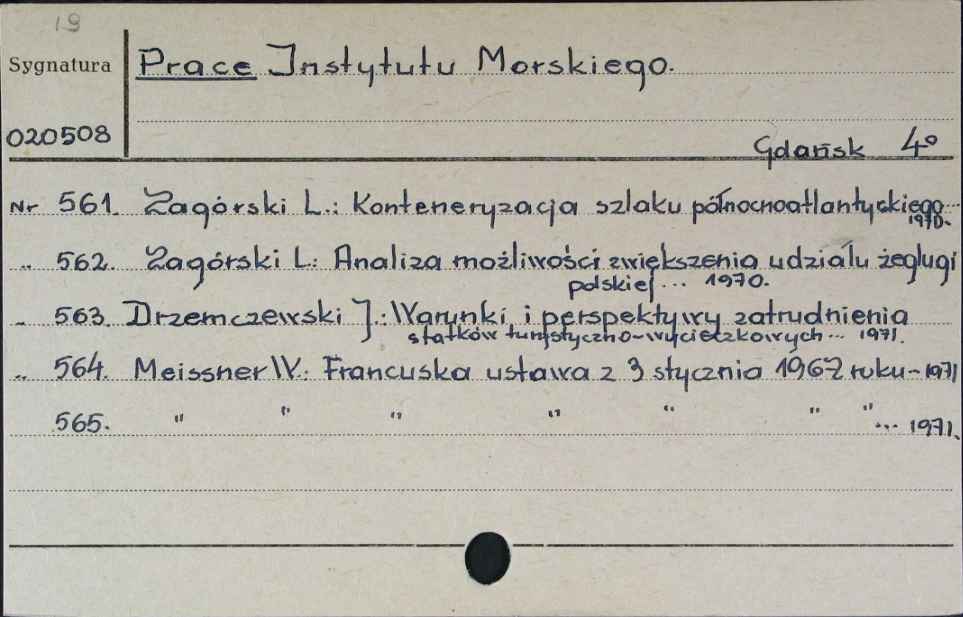 19
Sygnatura Prace Instytutu Morskiego.
020508
Gdańsk 4º
Nr 561. Zagórski L.: Konteneryzacja szlaku północnoatlantyckiego
1970.
„ 562. Zagórski L: Analiza możliwości zwiększenia udziału żeglugi
polskiej ... 1970.
„ 563. Drzemczewski J.: Warunki i perspektywy zatrudnienia
statków turystyczno-wycieczkowych ... 1971.
„ 564. Meissner W.: Francuska ustawa z 3 stycznia 1967 roku - 1971
565. " " " " " " " ... 1971.